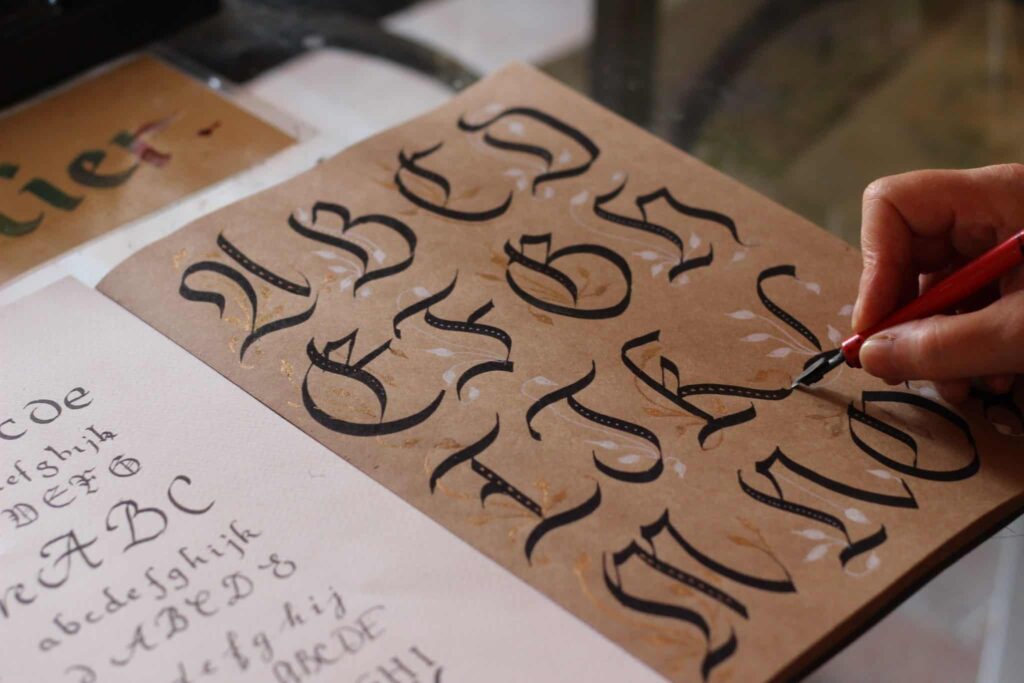 lier
A B C D
E F G H
I J K L
M N O
c d e
efghijk
D E F G
A B C
abcdefghijk
A B C D E
efg hij
ABCDE
HI